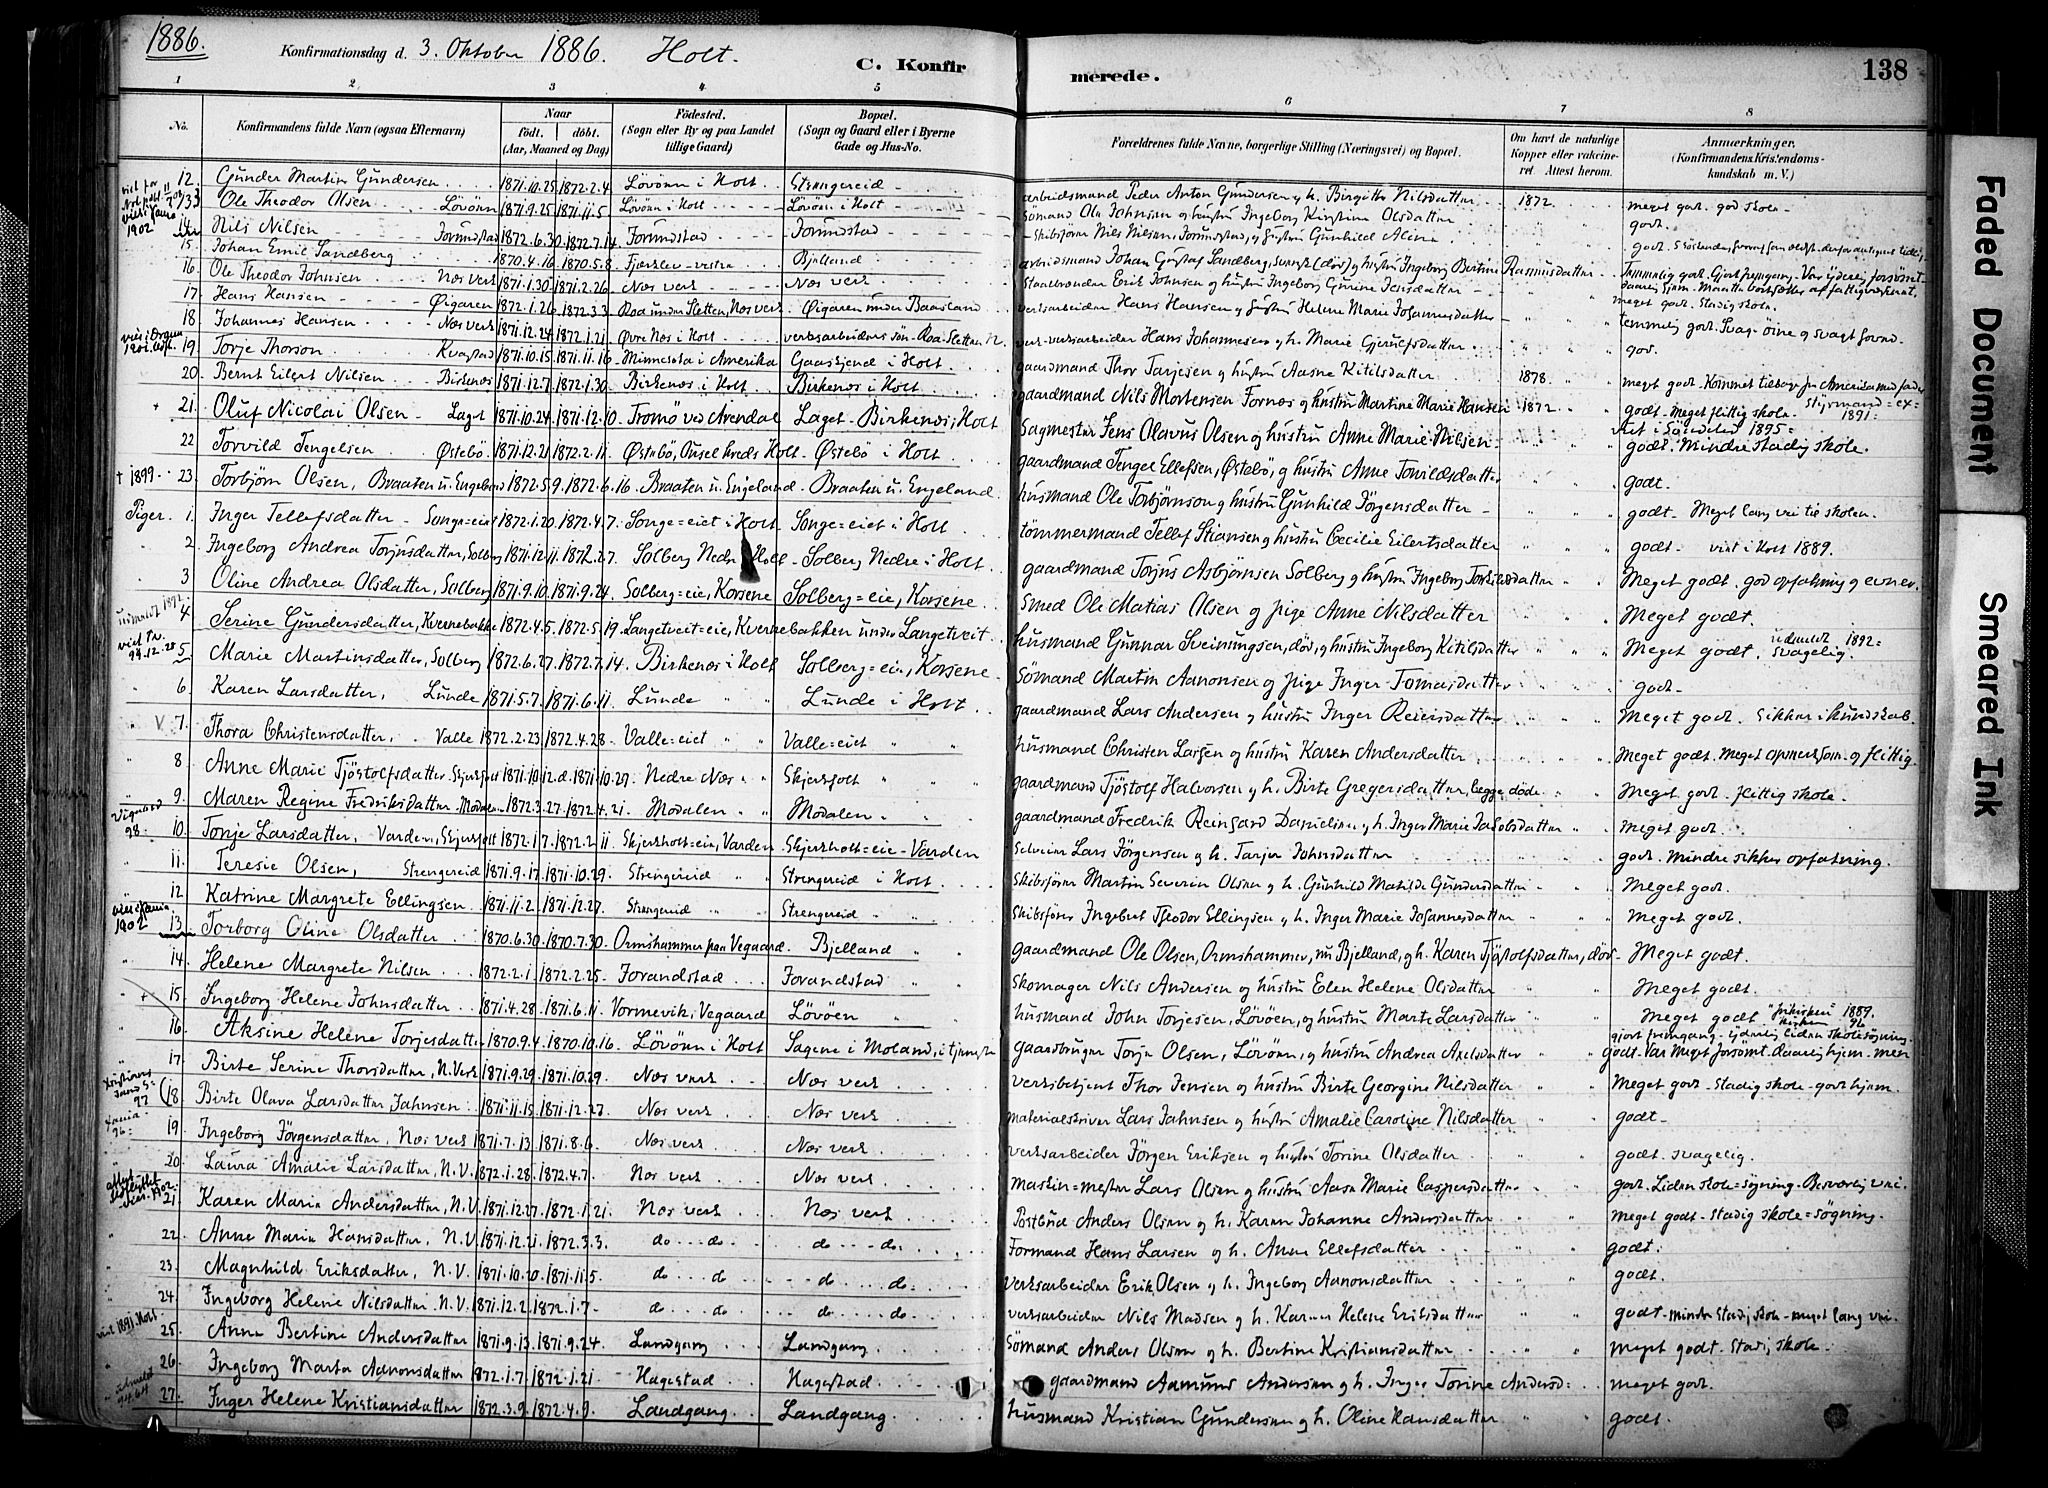 1886.
Konfirmationsdag d. 3. Oktober 1886. Holt.
C. Konfirmerede.
138
1 2 3 4 5 6 7 8
No. Konfirmandens fulde Navn (ogsaa Efternavn) Naar födt. döbt. (Aar, Maaned og Dag) Födested. (Sogn eller By og paa Landet tillige Gaard) Bopæl. (Sogn og Gaard eller i Byerne Gade og Hus-No. Forældrenes fulde Navne, borgerlige Stilling (Næringsvei) og Bopæl. Om havt de naturlige Kopper eller vakcineret. Attest herom. Anmærkninger. (Konfirmandens Kristendomskundskab m. V.)
12. Gunder Martin Gundersen 1871.10.25. 1872.2.4. Lövönn i Holt Strengereid arbeidsmand Peder Anton Gundersen g h. Birgitte Nilsdatter 1872. meget godt. god skole
13 Ole Theodor Olsen Lövönn 1871.9.25. 1871.11.5. Lövönn i Holt Lövönn i Holt Sömand Ole Johnsen og hustru Ingeborg Kirstine Olsdatter godt.
14 Nils Nilsen Forundstad 1872.6.30. 1872.7.14 Forundstad Forundstad Skibsförer Nils Nilsen, Forundstad, og hustru Gunhild Alina
15. Johan Emil Sandberg 1870.4.16. 1870.5.8. Bjelland arbeidsmand Johan Gustaf Sandberg, svensk (död) og hustru Ingeborg Bertine Rasmusdatter
16. Ole Theodor Johnsen Næs verk 1871.1.30. 1871.2.26. Næs verk Næs verk Erik Johnsen og hustru Ingeborg Gurine Jensdatter
17. Hans Hansen Øigaren 1872.1.26. 1872.3.3. Roa under Sletten, Næs verk Øigaren under Baasland verksarbeider Hans Hansen og hustru Helene Marie Johannesdatter meget godt. Stadig skole.
18 Johannes Hansen Næs verk 1871.12.24. 1872.1.21. Øvre Næs i Holt verksarbeiders sön. Roa Sletten N. verksarbeider Hans Johannesen g h. Marie temmelig godt. Svage öine og svagt
19. Torje Thorson Kvastad 1871.10.15. 1871.11.16 Minnesota i Amerika Gaaskjend i Holt gaardmand Thor Tarjesen og hustru Aasne Kitilsdatter 1878. god.
20. Bernt Eilert Nilsen Birkenæs 1871.12.7. 1872.1.30. Birkenæs i Holt Birkenæs i Holt gaardmand Nils Mortensen Fornæs og hustru Martine Marie Hansen 1872. meget godt. Kommet tilbage fra Amerika med fader
21. Oluf Nicolai Olsen Laget 1871.10.24. 1871.12.10. Tromö ved Arendal Laget Birkenæs, Holt Sagmester Jens Olavus Olsen og hustru Anne Marie Nilsen godt. Meget flittig skole. Styrmand=ex= 1891= Att i Söndeled 1895=
22 Torvild Tengelsen Østebö 1871.12.21. 1872.2.11. Østebö, Onsel kreds Holt Østebö i Holt gaardmand Tengel Ellefsen, Østebö, og hustru Anne Torvildsdatter godt. Mindre stadig skole.
+ 1899. 23. Torbjörn Olsen, Braaten u. Engeland 1872.5.9. 1872.6.16. Braaten u. Engeland Braaten u. Engeland husmand Ole Torbjörnson og hustru Gunhild Jörgensdatter godt.
Piger. 1. Inger Tellefsdatter Songe=eiet 1872.1.20. 1872.4.7. Songe=eiet i Holt Songe=eiet i Holt tömmermand Tellef Stiansen og hustru Cecilie Eilertsdatter godt. Meget lang vei til skolen.
2. Ingeborg Andrea Torjusdatter, Solberg 1871.12.11. 1872.2.7. Solberg Nedre Holt Solberg Nedre i Holt gaardmand Torjus Asbjörnsen Solberg og hustru Ingeborg Torkilsdatter godt. viet i Holt 1889.
3 Oline Andrea Olsdatter, Solberg 1871.9.10. 1871.9.24. Solberg=eie, Korsene Solberg=eie, Korsene. Smed Ole Matias Olsen og pige Anne Nilsdatter Meget godt. god opfatning og evner.
4 Serine Gundersdatter, Kvernebakke 1872.4.5. 1872.5.19. Langetveit=eie, Kvernebakken under Langetveit. husmand Gunnar Sveinungsen, död, og hustru Ingeborg Kitilsdatter Meget godt.
5 Marie Martinsdatter, Solberg 1872.6.27. 1872.7.14. Birkenæs i Holt Solberg=eie, Korsene Sömand Martin Aanonsen og pige Inger Tomasdatter Meget godt. svagelig. udmeldt 1892=
6 Karen Larsdatter, Lunde 1871.5.7. 1871.6.11 Lunde Lunde i Holt gaardmand Lars Andersen og hustru Inger Reiersdatter godt
V 7. Thora Christensdatter, Valle 1872.2.23. 1872.4.28. Valle=eiet Valle=eiet husmand Christen Larsen og hustru Karen Andersdatter Meget godt. Sikker i kundskab.
8 Anne Marie Tjöstolfsdatter, Skjerkholt 1871.10.12. d. 1871.10.29. Nedre Næs Skjerkholt gaardmand Tjöstolf Halvorsen g h. Birte Gregersdatter, begge döde Meget godt. Meget opmerksom og flittig.
9. Maren Regine Fredriksdatter, Modalen 1872.3.27. 1872.4.21. Modalen Modalen gaardmand Fredrik Reinhard Danielsen g h. Inger Marie Jakobsdatter Meget godt. flittig skole.
10. Torije Larsdatter, Varden, Skjerkholt 1872.1.7. 1872.2.11 Skjerkholt=eie, Varden Skjerkholt=eie Varden Selveier Lars Jörgensen g h. Tarjer Johnsdatter Meget godt.
11. Teresie Olsen, Strengereid 1871.9.17. 1871.10.29. Strengereid Strengereid i Holt Skibsförer Martin Severin Olsen g h. Gunhild Matilde Gundersdatter godt. mindre sikker opfatning.
12. Katrine Margrete Ellingsen 1871.11.2. 1871.12.27. Strengereid Strengereid Skibsförer Ingebret Theodor Ellingsen g h. Inger Marie Johannesdatter Meget godt.
1902 13. Torborg Oline Olsdatter 1870.6.30. 1870.7.30. Ormshammer paa Vegaard. Bjelland gaardmand Ole Olsen, Ormshammer, nu Bjelland, g h. Karen Tjöstolfsdatter, död Meget godt.
14. Helene Margrete Nilsen 1872.2.1. 1872.2.25. Forandstad Forandstad Skomager Nils Andersen og hustru Elen Helene Olsdatter Meget godt.
+ 15. Ingeborg Helene Johnsdatter 1871.4.28. 1871.6.11. Vormevik, Vegaard Lövöen husmand John Torjesen, Lövöen, og hustru Marte Larsdatter Meget godt 1889.
16. Aksine Helene Torjesdatter 1870.9.4. 1870.10.16. Lövönn i Holt Sagene i Moland, i tjeneste gaardbruger Torje Olsen, Lövönn, og hustru Andrea Axelsdatter gjort fremgang. yderlig liden skolesögning
17. Birte Serine Thorsdatter, N. Verk 1871.9.29. 1871.10.29. Næs verk Næs verk verksbetjent Thor Jensen og hustru Birte Georgine Nilsdatter godt. Var meget forsömt. daarlig hjem. men
18. Birte Olava Larsdatter Jahnsen 1871.11.15. 1871.12.27 Næs verk Næs verk materialskriver Lars Jahnsen og hustru Amalie Caroline Nilsdatter Meget godt. Stadig skole. godt hjem.
19. Ingeborg Jörgensdatter, Næs verk 1871.7.13. 1871.8.6. Næs verk Næs verk verksarbeider Jörgen Eriksen og hustru Torine Olsdatter godt
20. Laura Amalie Larsdatter, N.V. 1872.1.28. 1872.4.7. Næs verk Næs verk maskin=mester Lars Olsen og hustru Aasa Marie Caspersdatter godt. svagelig.
21. Karen Maria Andersdatter, N.V. 1871.12.27. 1872.1.21. Næs verk Næs verk Postbud Anders Olsen g h. Karen Johanne Andersdatter godt. Liden skole=sögning. Besværlig vei.
22. Anne Maria Hansdatter. N.V. 1871.12.21. 1872.3.3. do do do do. Formand Hans Larsen g h. Anne Ellefsdatter meget godt. stadig skole=sögning.
23. Magnhild Eriksdatter, N.V. 1871.10.20. 1871.11.5. do do do do. verksarbeider Erik Olsen g h. Ingeborg Aanonsdatter godt.
24. Ingeborg Helene Nilsdatter. N.V. 1871.12.2. 1872.1.7. do do do do verksarbeider Nils Madsen g h. Karen Helene Eriksdatter godt.
viet 1891. Holt 25. Anna Bertine Andersdatter 1871.9.13. 1871.9.24. Landgang Landgang Sömand Anders Olsen g h. Bertine Kristiansdatter godt. mindre stadig skole. meget lang vei.
26. Ingeborg Marta Aanonsdatter 1872.1.7. 1872.1.21. Hagestad Hagestad gaardmand Aamund Andersen g h. Inger Torine Andersd= meget godt. Stadig skole.
27. Inger Helene Kristiansdatter 1872.3.9. 1872.4.9. Landgang Landgang husmand Kristian Gundersen g h. Oline Hansdatter meget godt.
godt.
Faded Document
Smeared Ink